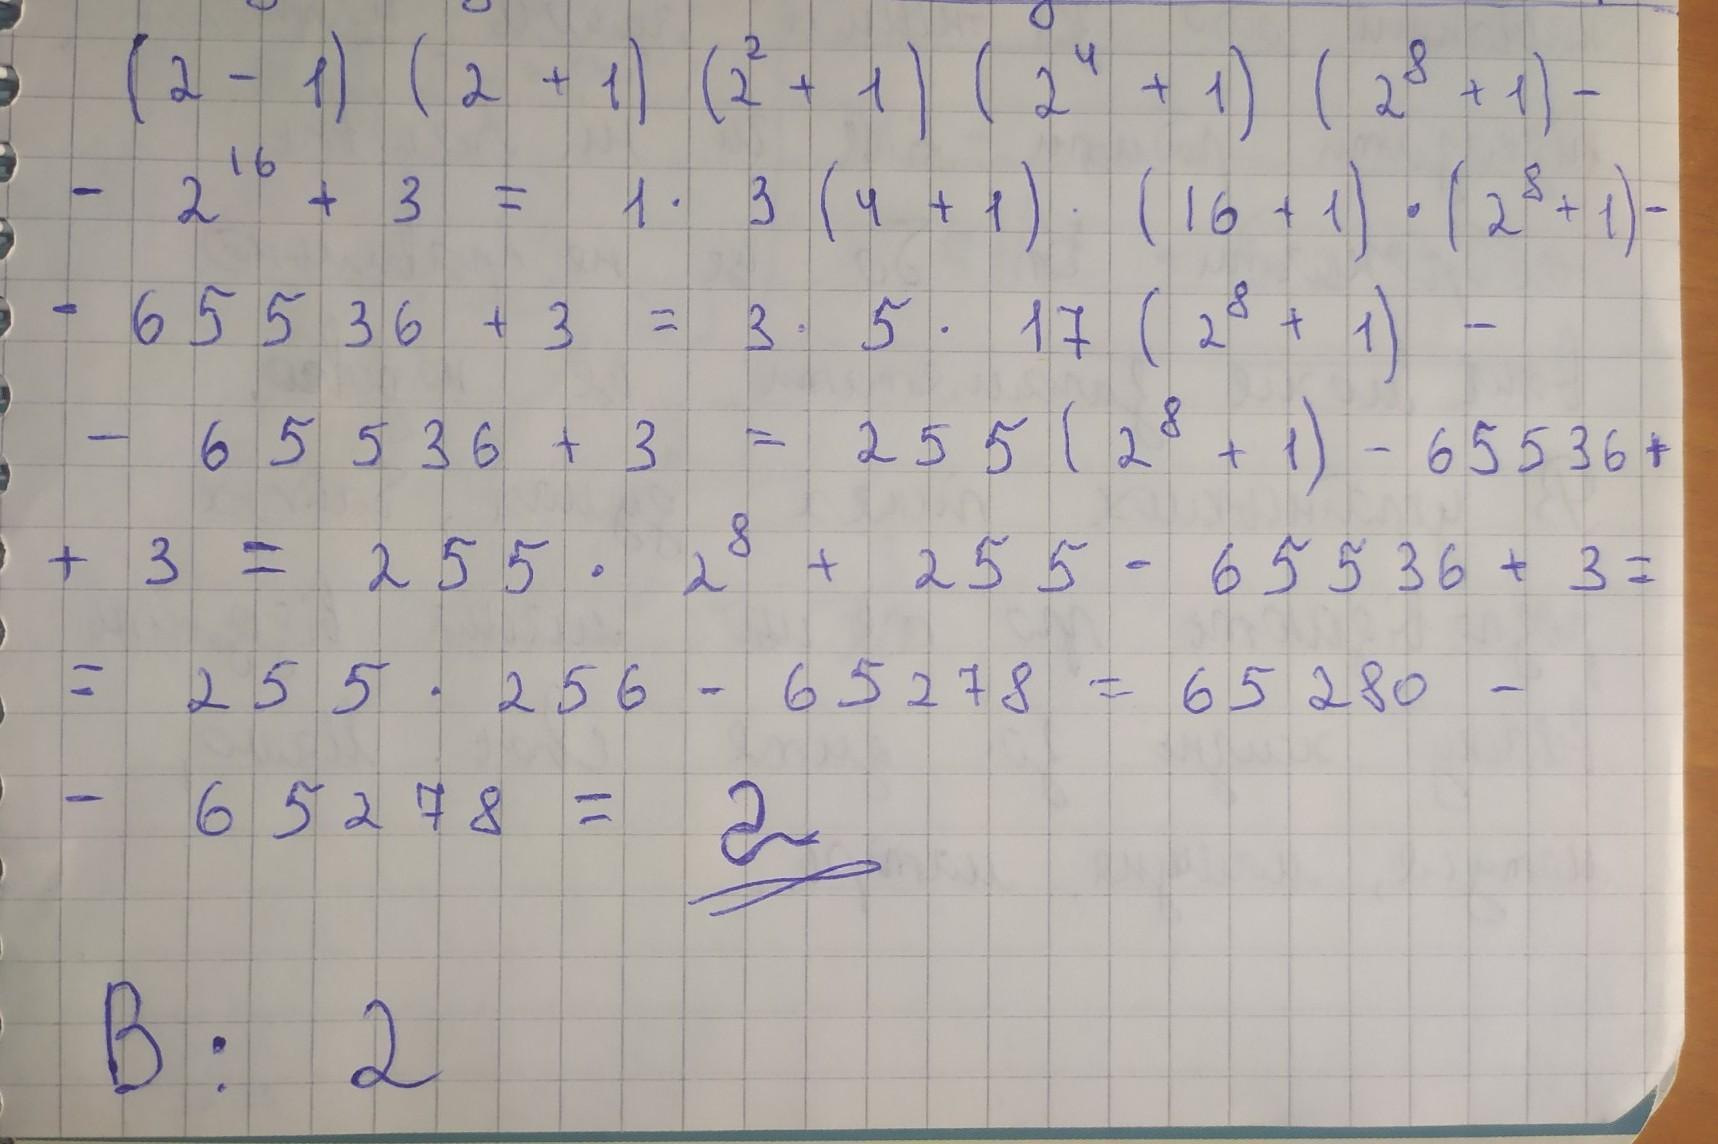 (2 - 1) (2 + 1) (2² + 1) (2⁴ + 1) (2⁸ + 1) -
- 2¹⁶ + 3 = 1 · 3 (4 + 1) · (16 + 1) · (2⁸ + 1) -
- 65536 + 3 = 3 · 5 · 17 (2⁸ + 1) -
- 65536 + 3 = 255 (2⁸ + 1) - 65536 +
+ 3 = 255 · 2⁸ + 255 - 65536 + 3 =
= 255 · 256 - 65278 = 65280 -
- 65278 = 2
В: 2